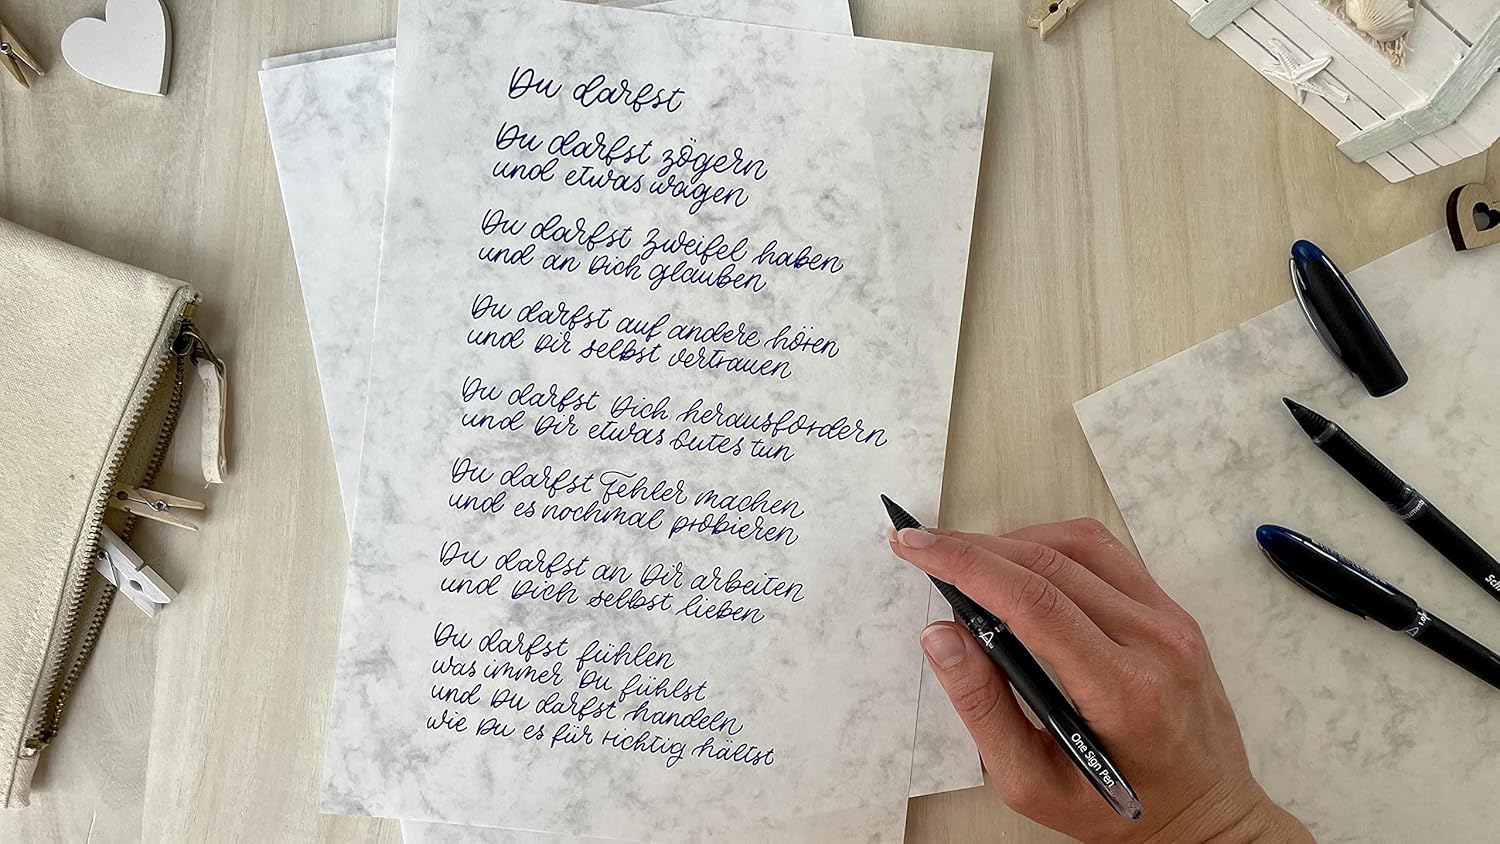 Du darfst
Du darfst zögern
und etwas wagen
Du darfst Zweifel haben
und an Dich glauben
Du darfst auf andere hören
und Dir selbst vertrauen
Du darfst Dich herausfordern
und Dir etwas Gutes tun
Du darfst Fehler machen
und es nochmal probieren
Du darfst an Dir arbeiten
und Dich selbst lieben
Du darfst fühlen
was immer Du fühlst
und Du darfst handeln
wie Du es für richtig hältst
One Sign Pen